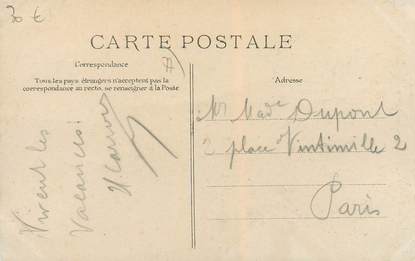 30 €
CARTE POSTALE
Correspondance
Tous les pays étrangers n'acceptent pas la
correspondance au recto, se renseigner à la Poste
Vivent les
vacances!
Adresse
Mr Made Dupont
2 place Vintimille 2
Paris